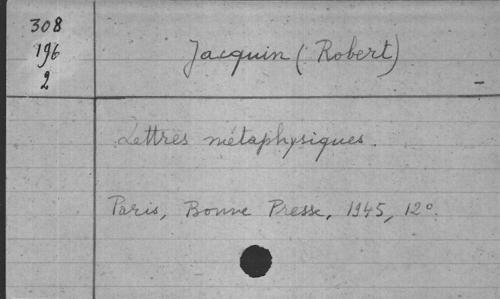 308
196
2
Jacquin (Robert)
Lettres métaphysiques.
Paris, Bonne Presse, 1945, 12°.